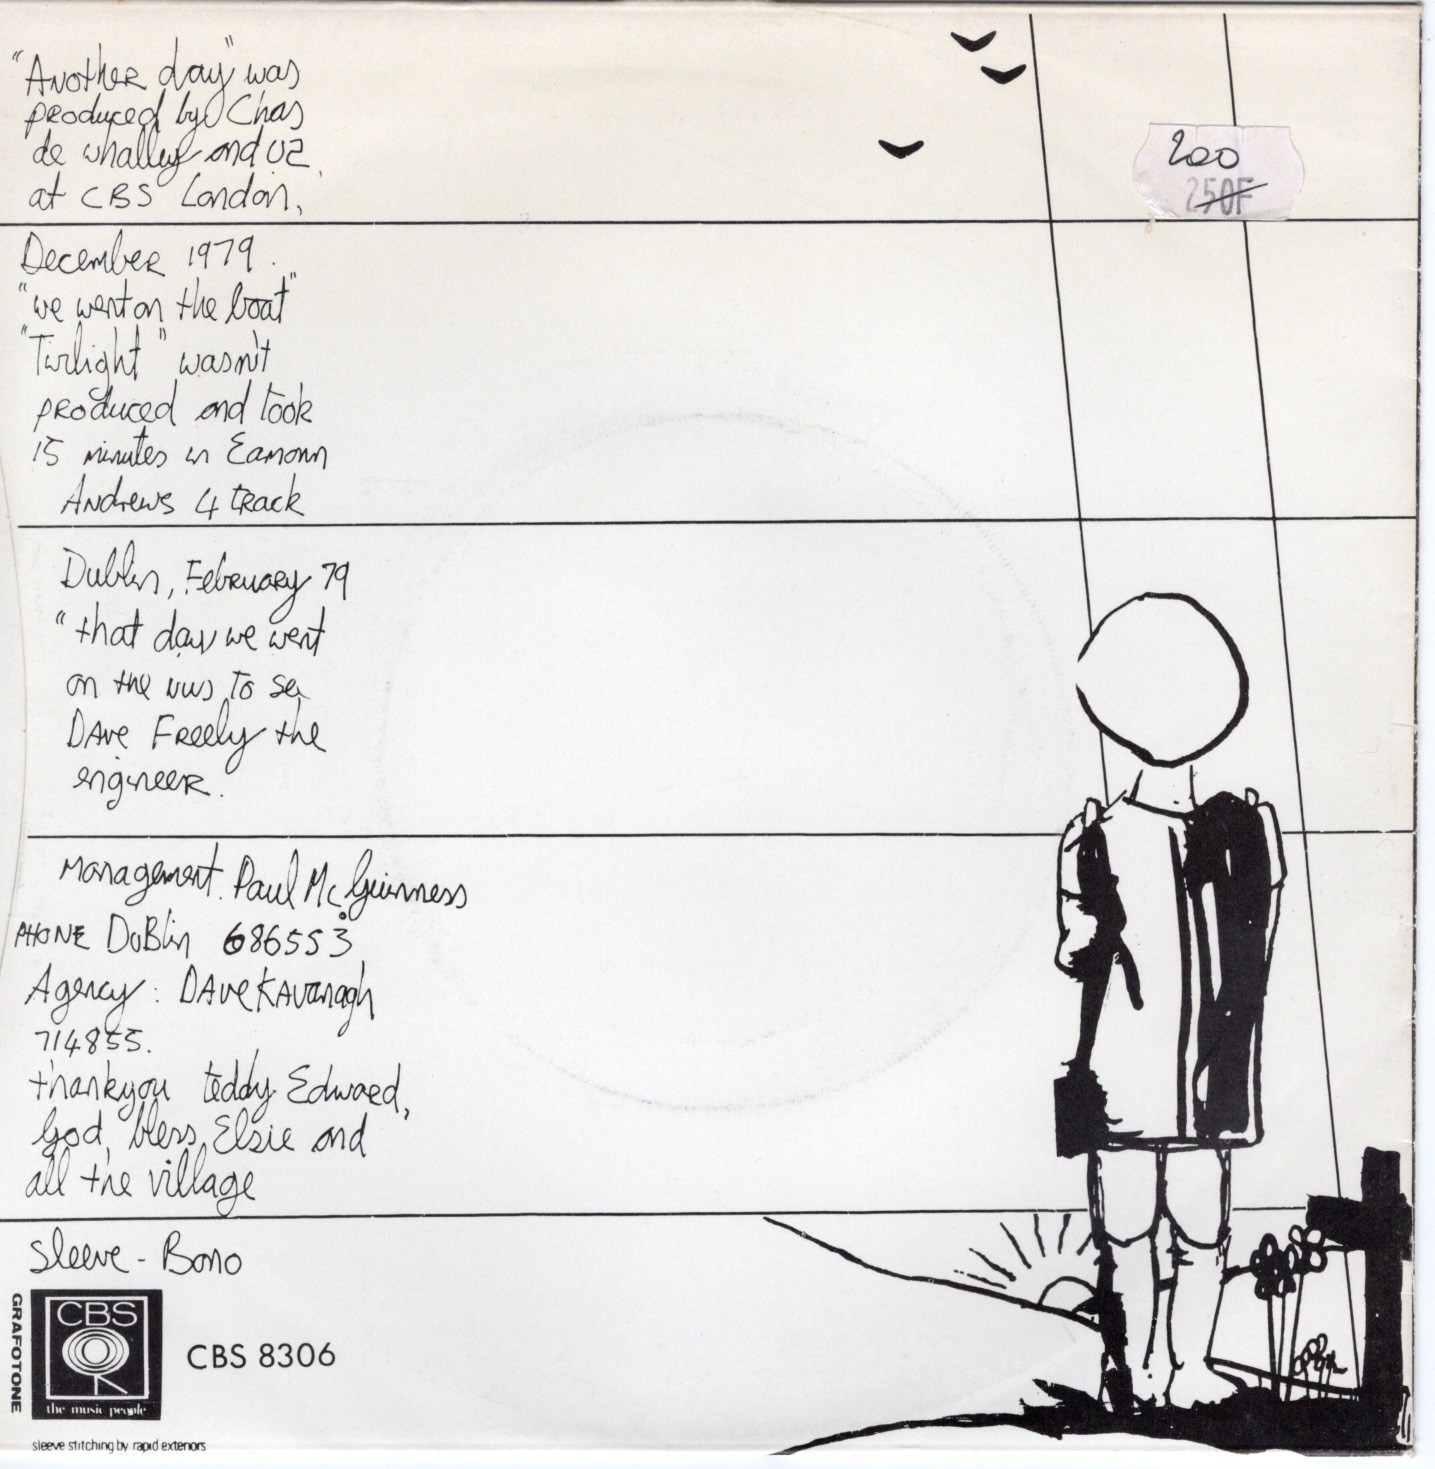 "Another day" was
produced by Chas
de whalley and U2
at CBS London,
December 1979.
"we went on the boat"
"Twilight" wasn't
produced and took
15 minutes in Eamonn
Andrews 4 track
Dublin, February 79
"that day we went
on the bus to see
Dave Freely the
engineer.
Management. Paul McGuinness
PHONE DuBlin 686553
Agency: Dave Kavanagh
714855.
thankyou teddy Edward,
God bless Elsie and
all the village
Sleeve - Bono
CBS
the music people
GRAFOTONE
CBS 8306
sleeve stitching by rapid exteriors
200
250F